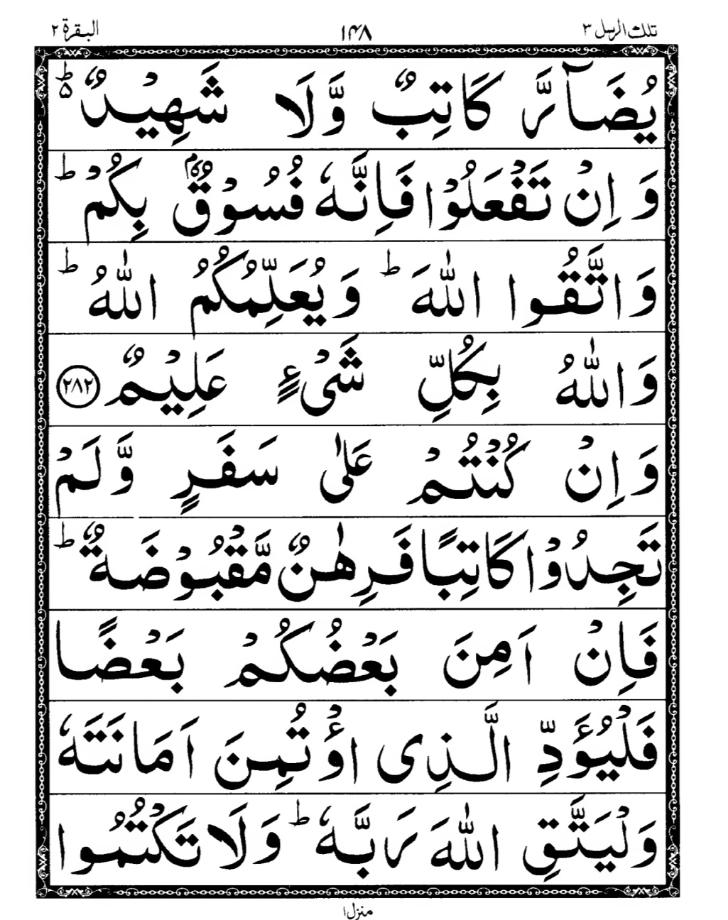 تلك الرسل ۳ ۱۴۸ البقرة ۲
يُضَآرَّ كَاتِبٌ وَّلَا شَهِيْدٌ ۵ؕ
وَ اِنْ تَفْعَلُوْا فَاِنَّهٗ فُسُوْقٌۢ بِكُمْ ؕ
وَاتَّقُوا اللّٰهَ ؕ وَيُعَلِّمُكُمُ اللّٰهُ ؕ
وَاللّٰهُ بِكُلِّ شَىْءٍ عَلِيْمٌ ۲۸۲
وَ اِنْ كُنْتُمْ عَلٰى سَفَرٍ وَّلَمْ
تَجِدُوْا كَاتِبًا فَرِهٰنٌ مَّقْبُوْضَةٌ ؕ
فَاِنْ اَمِنَ بَعْضُكُمْ بَعْضًا
فَلْيُؤَدِّ الَّذِى اؤْتُمِنَ اَمَانَتَهٗ
وَلْيَتَّقِ اللّٰهَ رَبَّهٗ ؕ وَلَا تَكْتُمُوا
منزل۱